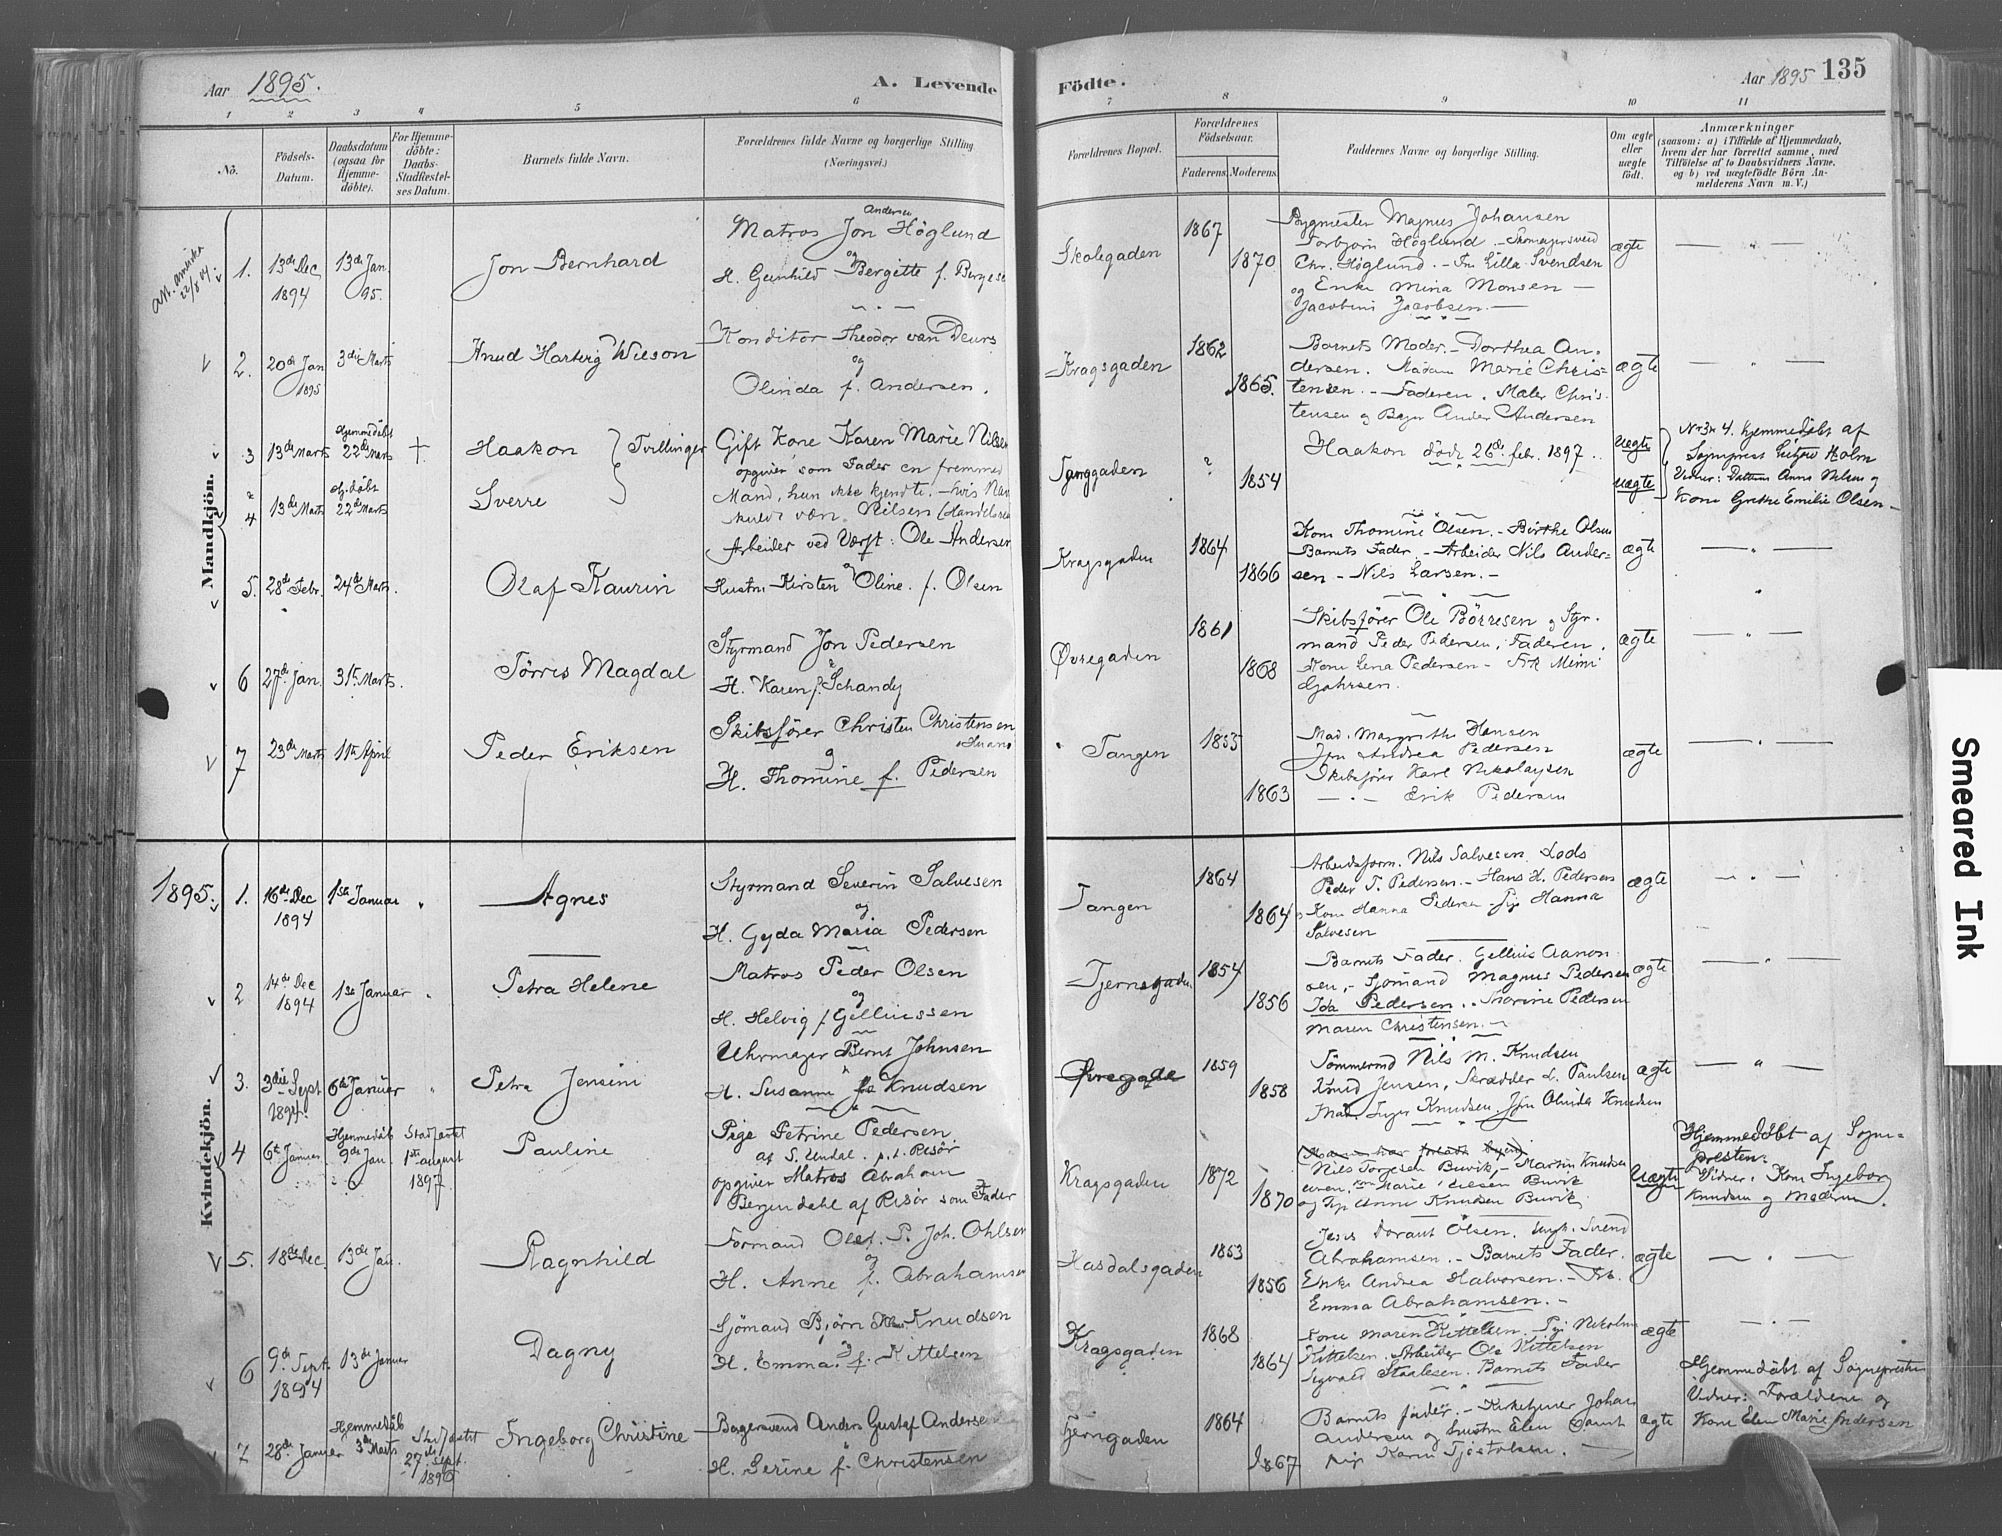 Aar 1895.
A. Levende
Födte.
Aar 1895 135
1 2 3 4 5 6 7 8 9 10 11
No.
Födsels-
Datum.
Daabsdatum
(ogsaa for
Hjemme-
döbte).
For Hjemme-
döbte:
Daabs-
Stadfæstel-
ses Datum.
Barnets fulde Navn.
Forældrenes fulde Navne og borgerlige Stilling
(Næringsvei.)
Forældrenes Bopæl.
Forældrenes
Födselsaar.
Faderens. Moderens.
Faddernes Navne og borgerlige Stilling.
Om ægte
eller
uægte
födt.
Anmærkninger
(saasom: a) i Tilfælde af Hjemmedaab,
hvem der har forrettet samme, med
Tilföielse af to Daabsvidners Navne,
og b) ved uægtefödte Börn An-
melderens Navn m. V.)
Mandkjön.
1. 13de Dec 1894
13de Jan 95.
Jon Bernhard
Andersen
Matros Jon Höglund
og
H. Gunhild Bergitte f.
Skolegaden
1867
1870
Bygmester Magnus Johansen
Torbjörn Höglund
Chr. Höglund. - Lilla Svendsen
og Enke Mina Monsen
Jacobsen.
ægte
2. 20de Jan 1895
3die Marts
Knud Hartvig Wilson
Konditor Theodor van Deurs
og
Olinda f. Andersen.
Kragsgaden
1862
1865.
Barnets Moder. - Dorthea An-
dersen. Madam Marie Chris-
tensen. - Faderen. Maler Chris-
tensen og Andersen
ægte
3 13de Marts
Hjemmedöbt
22de Marts
†
Haakon } Tvillinger
Gift Kone Karen Marie Nilsen
opgiver som Fader en fremmed
Mand, hun ikke kjendte. - hvis Navn
skulde være Nilsen
Tanggaden
?
1854
Haakon döde 26de feb. 1897.
Uægte
No 3 & 4. hjemmedöbt af
Sogneprest Holm
Vidner: Datteren Anna Nilsen og
Kone Grethe Emilie Olsen
4 13de Marts
Hj. döbt
22de Marts
Sverre
uægte
5. 28de Febr.
24de Marts.
Olaf Kaurin
Arbeider ved Værft: Ole Andersen
og
Hustru Kirsten Oline. f. Olsen
Kragsgaden
1864
1866
Kone Thomine Olsen. - Birthe Olsen
Barnets Fader. - Arbeider Nils Ander-
sen - Nils Larsen. -
ægte
6 27de Jan.
31te Marts.
Törres Magdal
Styrmand Jon Pedersen
H. Karen f. Schandy
Övregaden
1861
1868
Skibsförer Ole Börresen og Styr-
mand Peder Pedersen, Faderen.
Kone Lena Pedersen - Frk Mimi
ægte
7 23de Marts
11te April
Peder Eriksen
Skibsförer Christen Christensen
og
H. Thomine f. Pedersen
Tangen
1853
1863
Mad. Margrethe Hansen
Andrea Pedersen
Skibsförer Karl Nikolaysen
Erik Pedersen
ægte
Kvindekjön.
1895.
1. 16de Dec 1894
1ste Januar
Agnes
Styrmand Severin Salvesen
og
H. Gyda Maria Pedersen
Tangen
1864
1864
Arbeidsform. Nils Salvesen. Lods
Peder T. Pedersen. - Hans H. Pedersen
Kone Hanna Pedersen Hanna
Salvesen
ægte
2 14de Dec 1894
1ste Januar
Petra Helene
Matros Peder Olsen
og
H. Helvig f. Gelliussen
Tjernsgaden
1854
1856
Barnets Fader. Gellius Aanon-
sen, - Sjömand Magnus Pedersen
Ida Pedersen. Pedersen
Maren Christensen. -
ægte
3. 3die Sept 1894.
6te Januar
Petra Jensine
Uhrmager Bernt Johnsen
H. Susanne f. Knudsen
Övregade
1859
1858
Tömmermd Nils M. Knudsen
Knud Jensen, Skrædder L. Paulsen
Mad. Inger Knudsen. Olinda Knudsen
ægte
4 6te Januar
Hjemmedöb
9de Jan.
Stadfæstet
1ste august
1897.
Pauline
Pige Petrine Pedersen
af S. Undal. p. t. Risör
opgiver Matros Abraham
Bergendahl af Risör som Fader
Kragsgaden
1872
1870
Nils Torjesen Buvik, - Martin Knudsen
Marie Buvik
og Anne Knudsen Buvik
Uægte
Hjemmedöbt af Sogne-
presten:
Vidner: Kone Ingeborg
Knudsen og Moderen.
5. 18de Dec.
13de Jan.
Ragnhild
Formand Olef. P. Joh. Ohlsen
og
H. Anne f. Abrahamsen
Hasdalsgaden
1853
1856
Olsen. Ungk. Svend
Abrahamsen. - Barnets Fader.
Enke Andrea Halvorsen. - Frk.
Emma Abrahamsen. -
ægte
6 9de Sept. 1894
13de Januar
Dagny
Sjömand Björn Knudsen
og
H. Emma. f. Kittelsen
Kragsgaden
1868
1864
Kone Maren Kittelsen. Nikoline
Kittelsen. Arbeider Ole Kittelsen
Sigvald Staalesen. Barnets Fader
ægte
7 28de Januar
Hjemmedöb
3de Marts
Stadfæstet
27de Sept.
1896
Ingeborg Christine
Bagersvend Anders Gustaf Andersen
H. Serine f. Christensen
Tjerngaden
1864
1867
Barnets fader. - Kirketjener Johan
Andersen og hustru Elen Samt
Pige Karen Tjöstolsen.
ægte
Hjemmedöbt af Sognepresten
Vidner: Forældrene og
Kone Elen Marie Andersen
Smeared Ink